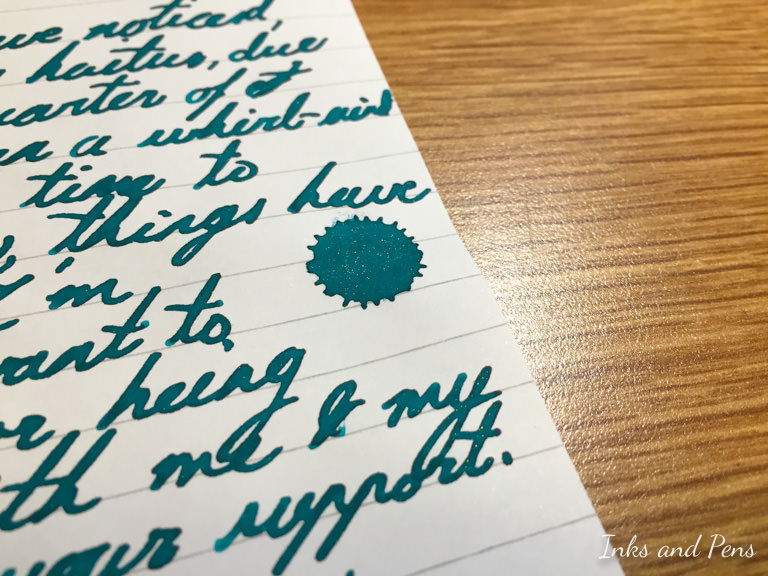 ve noticed,
haitus, due
quarter of it
a whirl-wind
time to
things have
I'm
want to,
or heing
with me & my
your support.
Inks and Pens